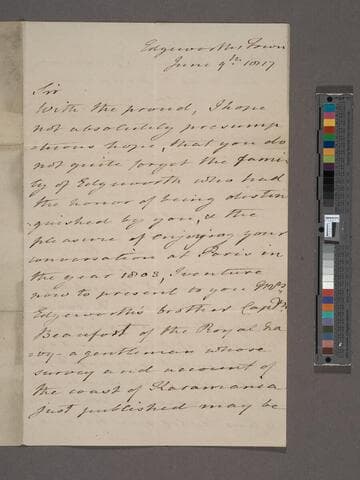 Edgeworths Town
June 9th. 1817
Sir
With the proud, I hope
not absolutely presump
tuous hope, that you do
not quite forget the fami
ly of Edgeworth who had
the honor of being distin
guished by you, & the
pleasure of enjoying your
conversation at Paris in
the year 1803, I venture
now to present to you Mrs
Edgeworth's brother Captn.
Beaufort of the Royal Na
vy - a gentleman whose
survey and account of
the coast of Karamania
just published may be